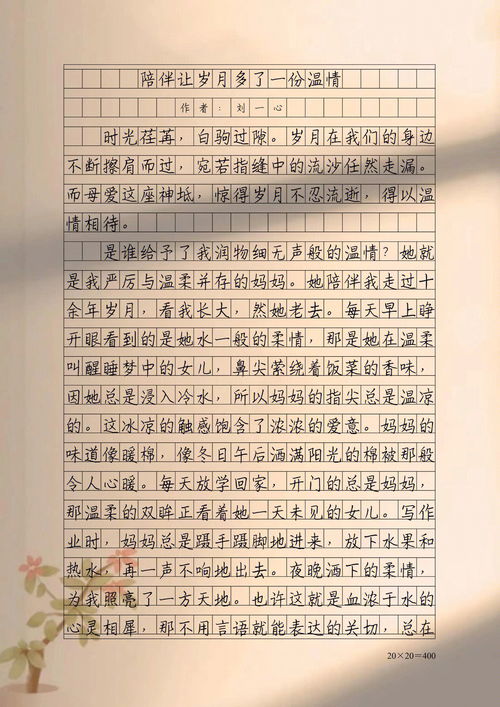 陪伴让岁月多了一份温情
作者：刘一心
时光荏苒，白驹过隙。岁月在我们的身边
不断擦肩而过，宛若指缝中的流沙任然走漏。
而母爱这座神坻，惊得岁月不忍流逝，得以温
情相待。
是谁给予了我润物细无声般的温情？她就
是我严厉与温柔并存的妈妈。她陪伴我走过十
余年岁月，看我长大，然她老去。每天早上睁
开眼看到的是她水一般的柔情，那是她在温柔
叫醒睡梦中的女儿，鼻尖萦绕着饭菜的香味，
因她总是浸入冷水，所以妈妈的指尖总是温凉
的。这冰凉的触感饱含了浓浓的爱意。妈妈的
味道像暖棉，像冬日午后洒满阳光的棉被那般
令人心暖。每天放学回家，开门的总是妈妈，
那温柔的双眸正看着她一天未见的女儿。写作
业时，妈妈总是蹑手蹑脚地进来，放下水果和
热水，再一声不响地出去。夜晚洒下的柔情，
为我照亮了一方天地。也许这就是血浓于水的
心灵相犀，那不用言语就能表达的关切，总在
20×20=400